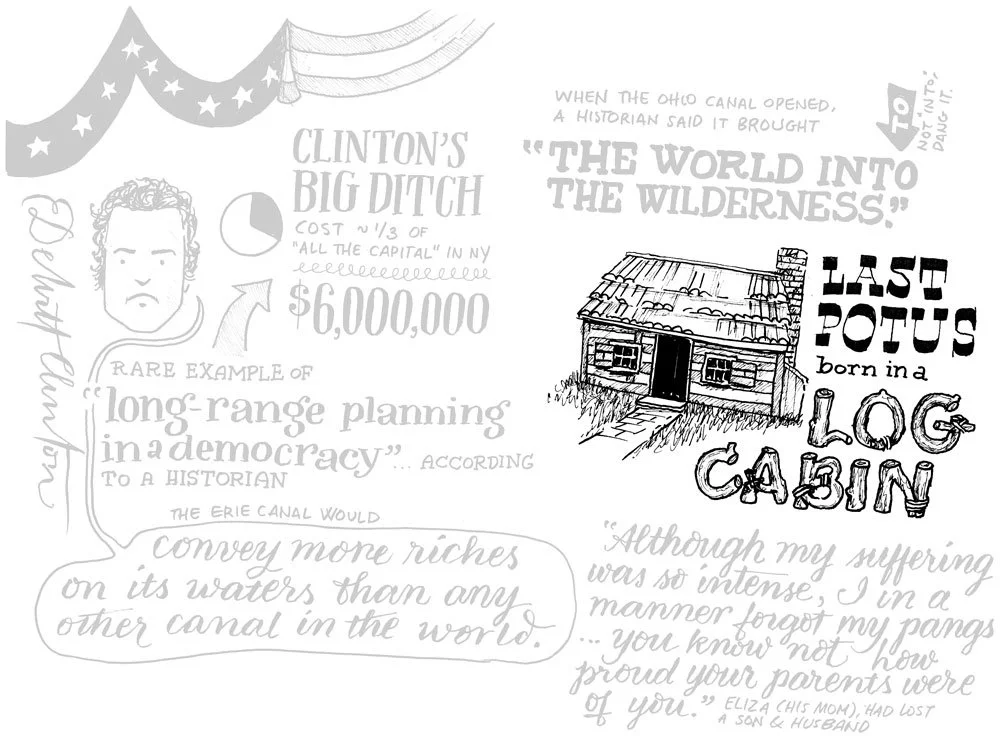 DeWitt Clinton
CLINTON'S
BIG DITCH
COST ~ 1/3 OF
"ALL THE CAPITAL" IN NY
$6,000,000
RARE EXAMPLE OF
"long-range planning
in a democracy"... ACCORDING
TO A HISTORIAN
THE ERIE CANAL WOULD
convey more riches
on its waters than any
other canal in the world.
WHEN THE OHIO CANAL OPENED,
A HISTORIAN SAID IT BROUGHT
TO
NOT "INTO",
DANG IT.
"THE WORLD INTO
THE WILDERNESS."
LAST
POTUS
born in a
LOG
CABIN
"Although my suffering
was so intense, I in a
manner forgot my pangs
... you know not how
proud your parents were
of you." ELIZA (HIS MOM), HAD LOST
A SON & HUSBAND